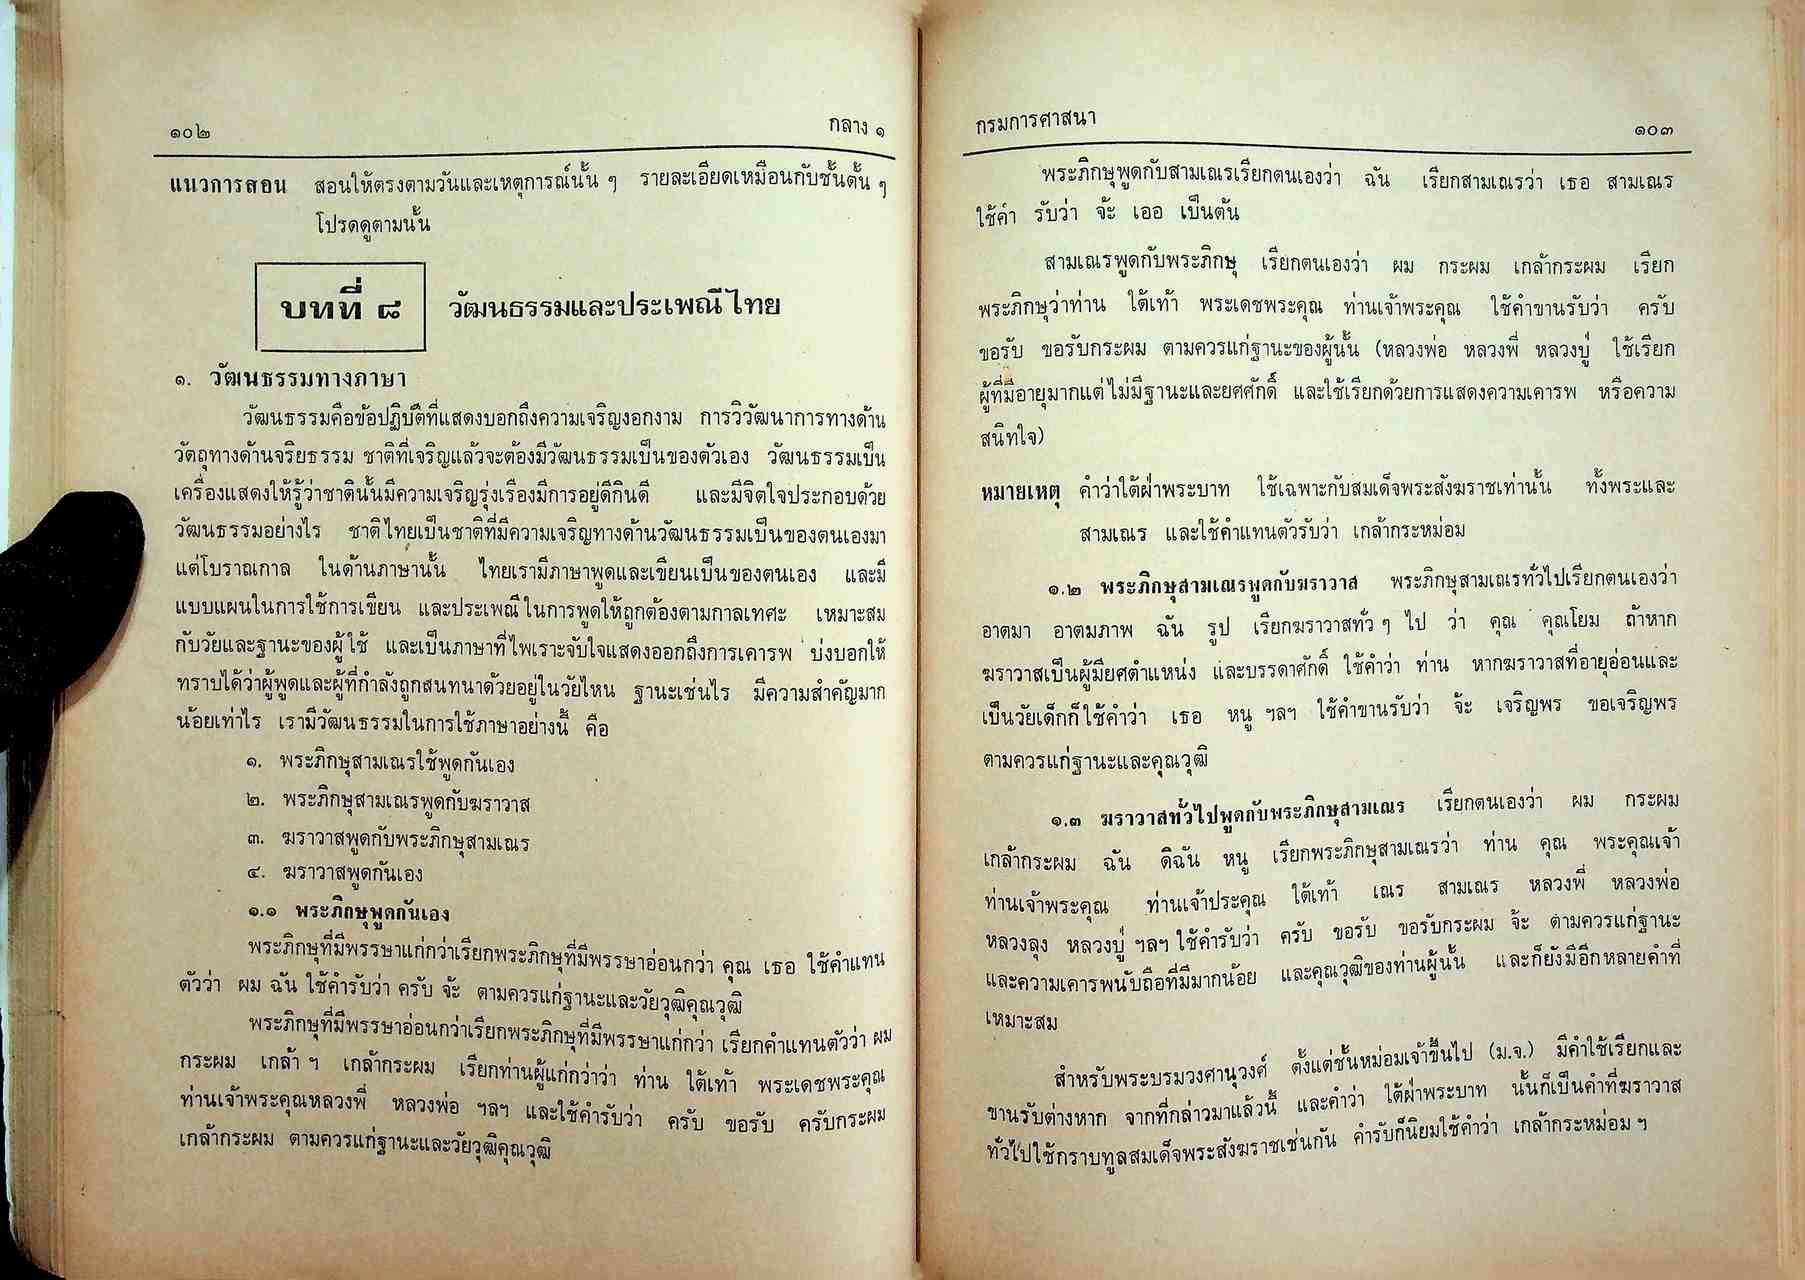 ๑๐๒
กลาง ๑
แนวการสอน สอนให้ตรงตามวันและเหตุการณ์นั้น ๆ รายละเอียดเหมือนกับชั้นต้น ๆ
โปรดดูตามนั้น
บทที่ ๘ วัฒนธรรมและประเพณีไทย
๑. วัฒนธรรมทางภาษา
วัฒนธรรมคือข้อปฏิบัติที่แสดงบอกถึงความเจริญงอกงาม การวิวัฒนาการทางด้าน
วัตถุทางด้านจริยธรรม ชาติที่เจริญแล้วจะต้องมีวัฒนธรรมเป็นของตัวเอง วัฒนธรรมเป็น
เครื่องแสดงให้รู้ว่าชาตินั้นมีความเจริญรุ่งเรืองมีการอยู่ดีกินดี และมีจิตใจประกอบด้วย
วัฒนธรรมอย่างไร ชาติไทยเป็นชาติที่มีความเจริญทางด้านวัฒนธรรมเป็นของตนเองมา
แต่โบราณกาล ในด้านภาษานั้น ไทยเรามีภาษาพูดและเขียนเป็นของตนเอง และมี
แบบแผนในการใช้การเขียน และประเพณีในการพูดให้ถูกต้องตามกาลเทศะ เหมาะสม
กับวัยและฐานะของผู้ใช้ และเป็นภาษาที่ไพเราะจับใจแสดงออกถึงการเคารพ บ่งบอกให้
ทราบได้ว่าผู้พูดและผู้ที่กำลังถูกสนทนาด้วยอยู่ในวัยไหน ฐานะเช่นไร มีความสำคัญมาก
น้อยเท่าไร เรามีวัฒนธรรมในการใช้ภาษาอย่างนี้ คือ
๑. พระภิกษุสามเณรใช้พูดกันเอง
๒. พระภิกษุสามเณรพูดกับฆราวาส
๓. ฆราวาสพูดกับพระภิกษุสามเณร
๔. ฆราวาสพูดกันเอง
๑.๑ พระภิกษุพูดกันเอง
พระภิกษุที่มีพรรษาแก่กว่าเรียกพระภิกษุที่มีพรรษาอ่อนกว่า คุณ เธอ ใช้คำแทน
ตัวว่า ผม ฉัน ใช้คำรับว่า ครับ จ้ะ ตามควรแก่ฐานะและวัยวุฒิคุณวุฒิ
พระภิกษุที่มีพรรษาอ่อนกว่าเรียกพระภิกษุที่มีพรรษาแก่กว่า เรียกคำแทนตัวว่า ผม
กระผม เกล้า ฯ เกล้ากระผม เรียกท่านผู้แก่กว่าว่า ท่าน ใต้เท้า พระเดชพระคุณ
ท่านเจ้าพระคุณหลวงพี่ หลวงพ่อ ฯลฯ และใช้คำรับว่า ครับ ขอรับ ครับกระผม
เกล้ากระผม ตามควรแก่ฐานะและวัยวุฒิคุณวุฒิ
กรมการศาสนา
๑๐๓
พระภิกษุพูดกับสามเณรเรียกตนเองว่า ฉัน เรียกสามเณรว่า เธอ สามเณร
ใช้คำ รับว่า จ้ะ เออ เป็นต้น
สามเณรพูดกับพระภิกษุ เรียกตนเองว่า ผม กระผม เกล้ากระผม เรียก
พระภิกษุว่าท่าน ใต้เท้า พระเดชพระคุณ ท่านเจ้าพระคุณ ใช้คำขานรับว่า ครับ
ขอรับ ขอรับกระผม ตามควรแก่ฐานะของผู้นั้น (หลวงพ่อ หลวงพี่ หลวงปู่ ใช้เรียก
ผู้ที่มีอายุมากแต่ไม่มีฐานะและยศศักดิ์ และใช้เรียกด้วยการแสดงความเคารพ หรือความ
สนิทใจ)
หมายเหตุ คำว่าใต้ฝ่าพระบาท ใช้เฉพาะกับสมเด็จพระสังฆราชเท่านั้น ทั้งพระและ
สามเณร และใช้คำแทนตัวรับว่า เกล้ากระหม่อม
๑.๒ พระภิกษุสามเณรพูดกับฆราวาส พระภิกษุสามเณรทั่วไปเรียกตนเองว่า
อาตมา อาตมภาพ ฉัน รูป เรียกฆราวาสทั่ว ๆ ไป ว่า คุณ คุณโยม ถ้าหาก
ฆราวาสเป็นผู้มียศตำแหน่ง และบรรดาศักดิ์ ใช้คำว่า ท่าน หากฆราวาสที่อายุอ่อนและ
เป็นวัยเด็กก็ใช้คำว่า เธอ หนู ฯลฯ ใช้คำขานรับว่า จ้ะ เจริญพร ขอเจริญพร
ตามควรแก่ฐานะและคุณวุฒิ
๑.๓ ฆราวาสทั่วไปพูดกับพระภิกษุสามเณร เรียกตนเองว่า ผม กระผม
เกล้ากระผม ฉัน ดิฉัน หนู เรียกพระภิกษุสามเณรว่า ท่าน คุณ พระคุณเจ้า
ท่านเจ้าพระคุณ ท่านเจ้าประคุณ ใต้เท้า เณร สามเณร หลวงพี่ หลวงพ่อ
หลวงลุง หลวงปู่ ฯลฯ ใช้คำรับว่า ครับ ขอรับ ขอรับกระผม จ้ะ ตามควรแก่ฐานะ
และความเคารพนับถือที่มีมากน้อย และคุณวุฒิของท่านผู้นั้น และก็ยังมีอีกหลายคำที่
เหมาะสม
สำหรับพระบรมวงศานุวงศ์ ตั้งแต่ชั้นหม่อมเจ้าขึ้นไป (ม.จ.) มีคำใช้เรียกและ
ขานรับต่างหาก จากที่กล่าวมาแล้วนี้ และคำว่า ใต้ฝ่าพระบาท นั้นก็เป็นคำที่ฆราวาส
ทั่วไปใช้กราบทูลสมเด็จพระสังฆราชเช่นกัน คำรับก็นิยมใช้คำว่า เกล้ากระหม่อม ฯ